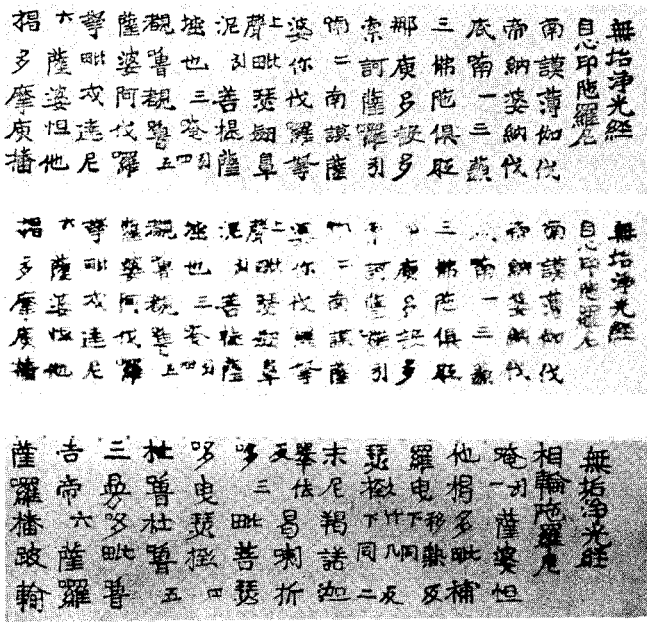 無垢淨光經
自心印陀羅尼
南謨薄伽伐
帝納婆納伐
底喃一三藐
三佛陀俱胝
那庾多設多
索訶薩囉引
喃二南謨薩
婆你伐囉拏
上聲毗瑟劒阜
泥引菩提薩
埵也三唵四引
覩嚕覩嚕五
薩婆阿伐囉
拏毗戍達尼
六薩婆怛他
揭多摩庾播
無垢淨光經
自心印陀羅尼
南謨薄伽伐
帝納婆納伐
底喃一三藐
三佛陀俱胝
庾多設多
訶薩囉引
喃二南謨薩
婆你伐囉拏
上聲毗瑟劒阜
泥引菩提薩
埵也三唵四引
覩嚕覩嚕五
薩婆阿伐囉
拏毗戍達尼
六薩婆怛他
揭多摩庾播
無垢淨光經
相輪陀羅尼
唵引一薩婆怛
他揭多毗補
羅曳移熱反下同
瑟下同二
末尼羯諾迦
曷喇折
哆三毗菩瑟
哆曳瑟四
杜嚕杜嚕五
三曼多毗嚕
吉帝六薩羅
薩羅播跛輸